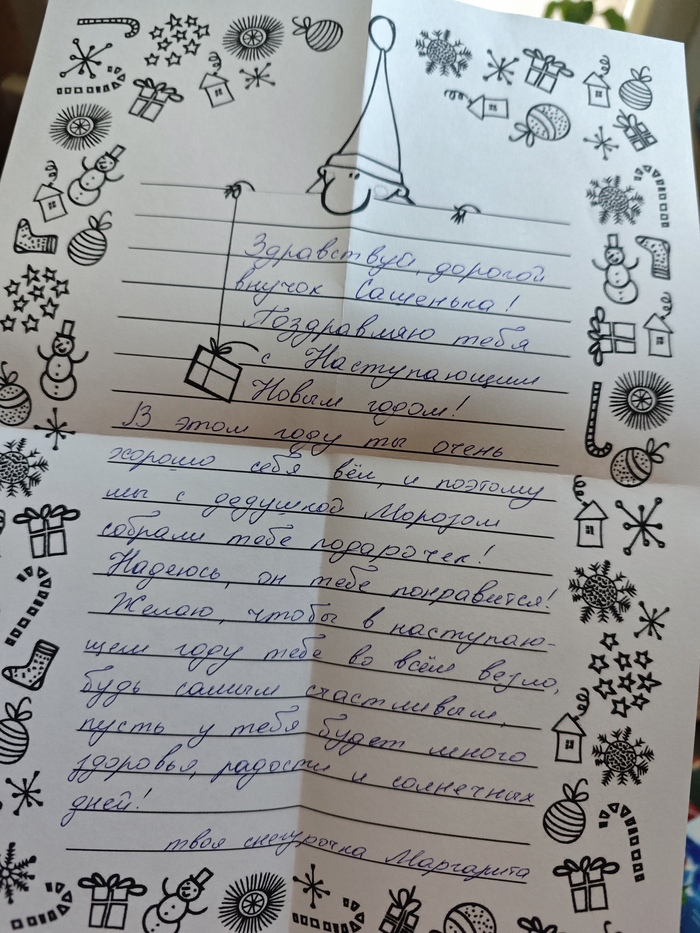 Здравствуй, дорогой
внучок Сашенька!
Поздравляю тебя
с Наступающим
Новым годом!
В этом году ты очень
хорошо себя вёл, и поэтому
мы с дедушкой Морозом
собрали тебе подарочек!
Надеюсь, он тебе понравится!
Желаю, чтобы в наступаю-
щем году тебе во всём везло,
будь самым счастливым,
пусть у тебя будет много
здоровья, радости и солнечных
дней!
твоя снегурочка Маргарита